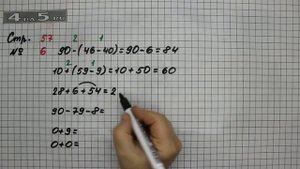 4PA5.PF
Стр. 57 2 1
№ 6 90-(46-40)=90-6=84
2 1
10+(59-9)=10+50=60
28+6+54=2
90-79-8=
0+9=
0+0=